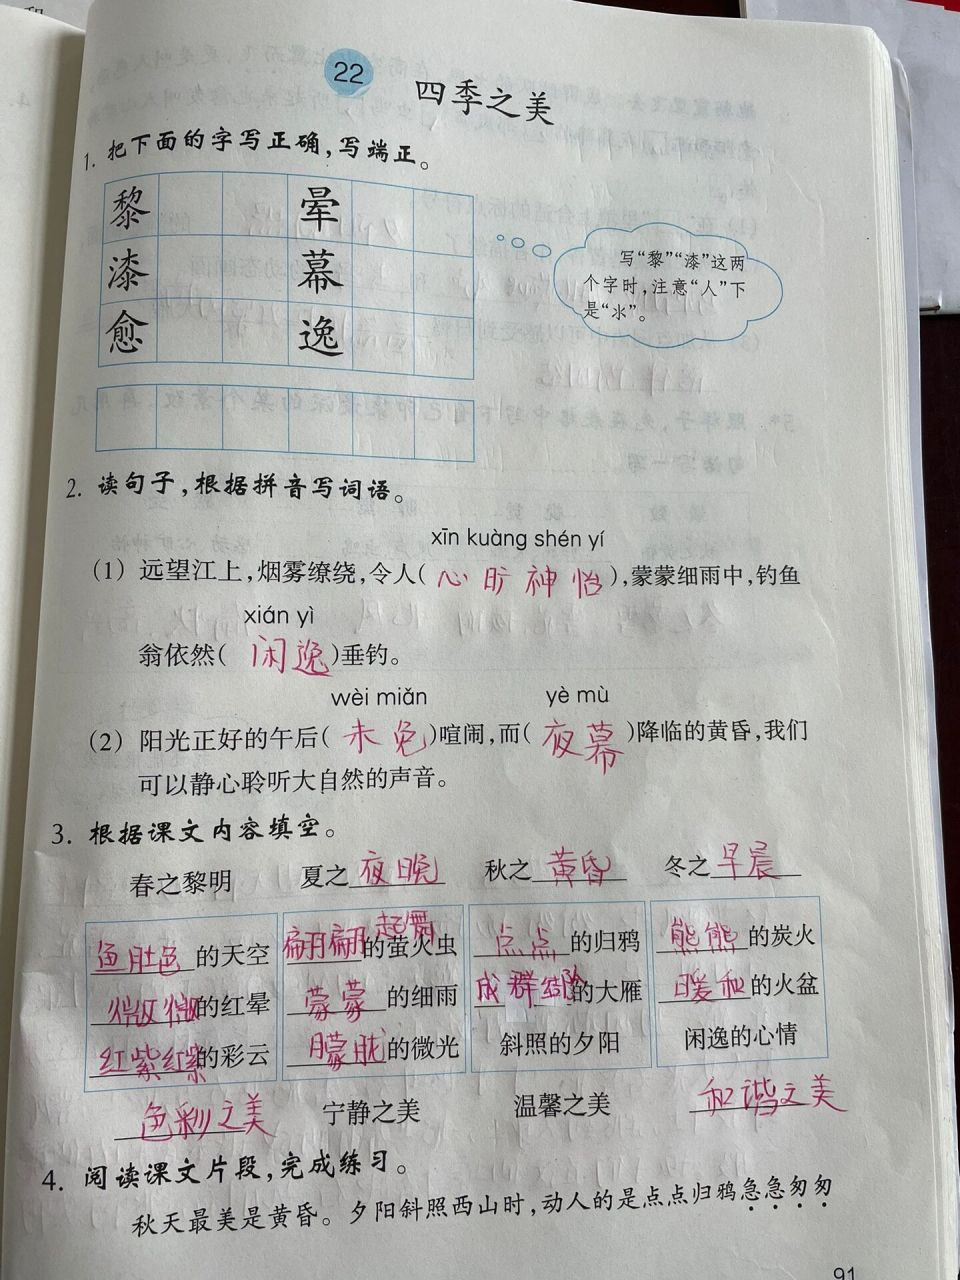 22
四季之美
1. 把下面的字写正确，写端正。
黎 晕
漆 幕
愈 逸
写“黎”“漆”这两
个字时，注意“人”下
是“氺”。
2. 读句子，根据拼音写词语。
xīn kuàng shén yí
（1） 远望江上，烟雾缭绕，令人（心旷神怡），蒙蒙细雨中，钓鱼
xián yì
翁依然（闲逸）垂钓。
wèi miǎn yè mù
（2） 阳光正好的午后（未免）喧闹，而（夜幕）降临的黄昏，我们
可以静心聆听大自然的声音。
3. 根据课文内容填空。
春之黎明 夏之夜晚 秋之黄昏 冬之早晨
鱼肚色的天空 翩翩起舞的萤火虫 点点的归鸦 熊熊的炭火
微微的红晕 蒙蒙的细雨 成群结队的大雁 暖和的火盆
红紫红紫的彩云 朦胧的微光 斜照的夕阳 闲逸的心情
色彩之美 宁静之美 温馨之美 和谐之美
4. 阅读课文片段，完成练习。
秋天最美是黄昏。夕阳斜照西山时，动人的是点点归鸦急急匆匆
91